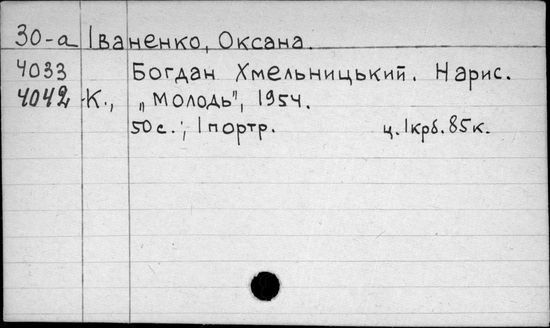 30-а Іваненко, Оксана.
4033 Богдан Хмельницький. Нарис.
4042 К., „Молодь", 1954.
50с.; 1 портр. ц. 1крб. 85к.